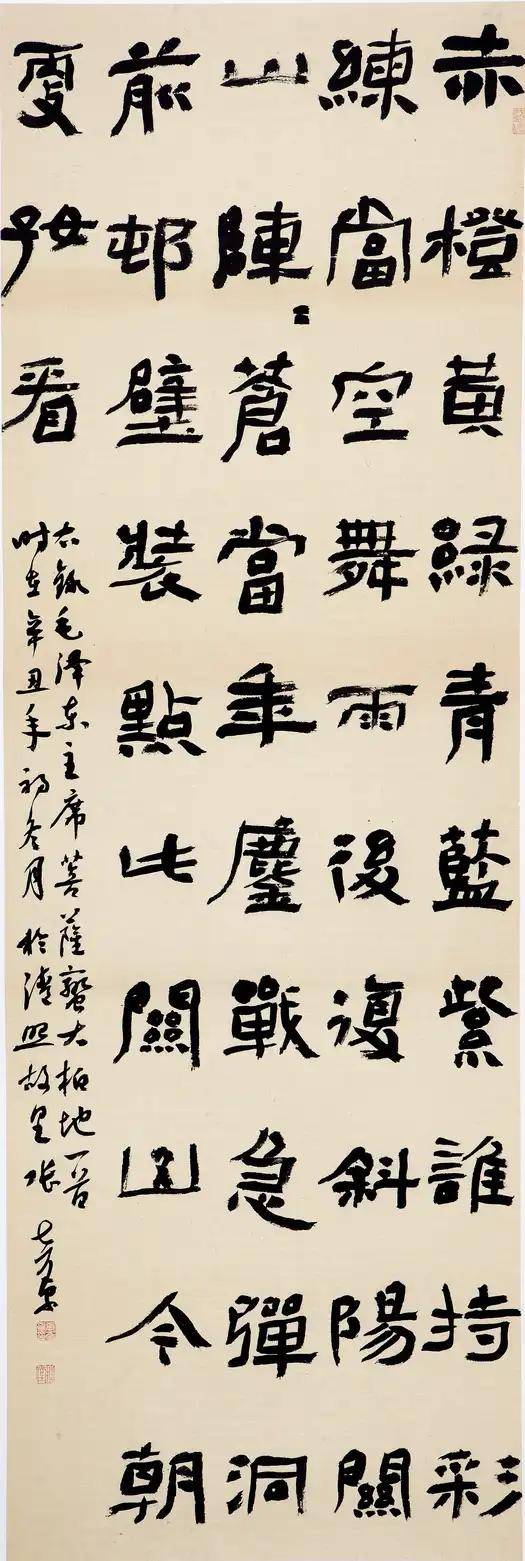 赤橙黃綠青藍紫誰持彩
練當空舞雨後復斜陽關
山陳〻蒼當年鏖戰急彈洞
前邨壁裝點此關山今朝
更好看
右録毛泽东主席菩薩蠻大柏地一首
时在辛丑年初冬月於清照故里张